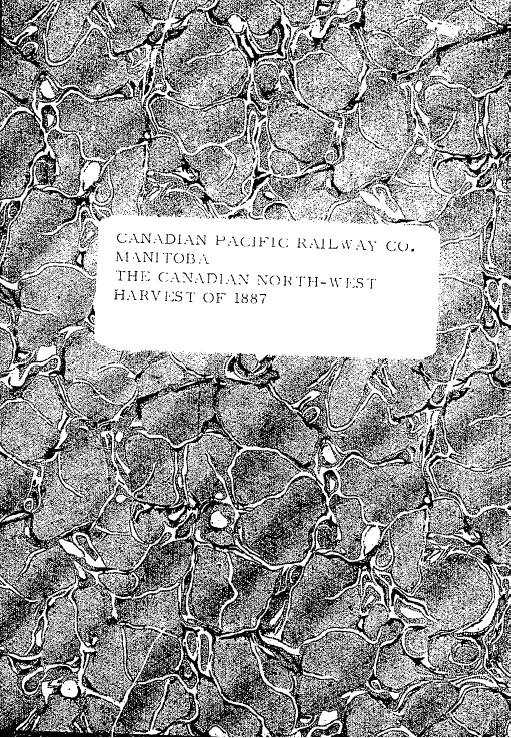 CANADIAN PACIFIC RAILWAY CO.
MANITOBA
THE CANADIAN NORTH-WEST
HARVEST OF 1887